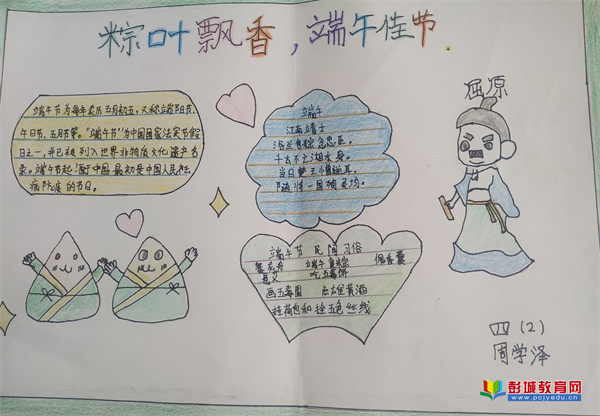 粽叶飘香,端午佳节.
端午节为每年农历五月初五,又称端阳节、
午日节、五月节等。"端午节"为中国国家法定节假
日之一,并已被列入世界非物质文化遗产名
录。端午节起源于中国,最初是中国人民祛
病防疫的节日。
端午
江南靖士
千古不亡湖水身。
当日楚王
端午节民间习俗
赛龙舟 端午食粽 佩香囊
悬艾 吃五毒饼
画五毒图 点雄黄酒
挂荷包和拴五色丝线
屈原
四(2)
周学泽
彭城教育网
www.pcjyedu.cn